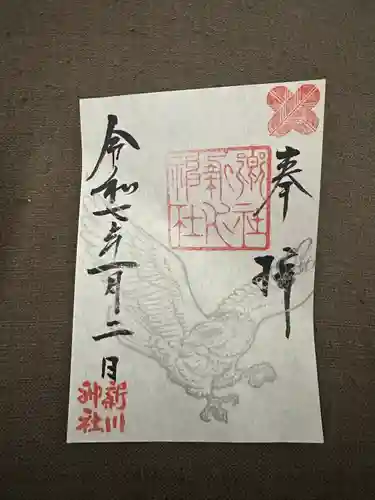 奉拝
郷社新川神社
令和七年一月二日
新川
神社